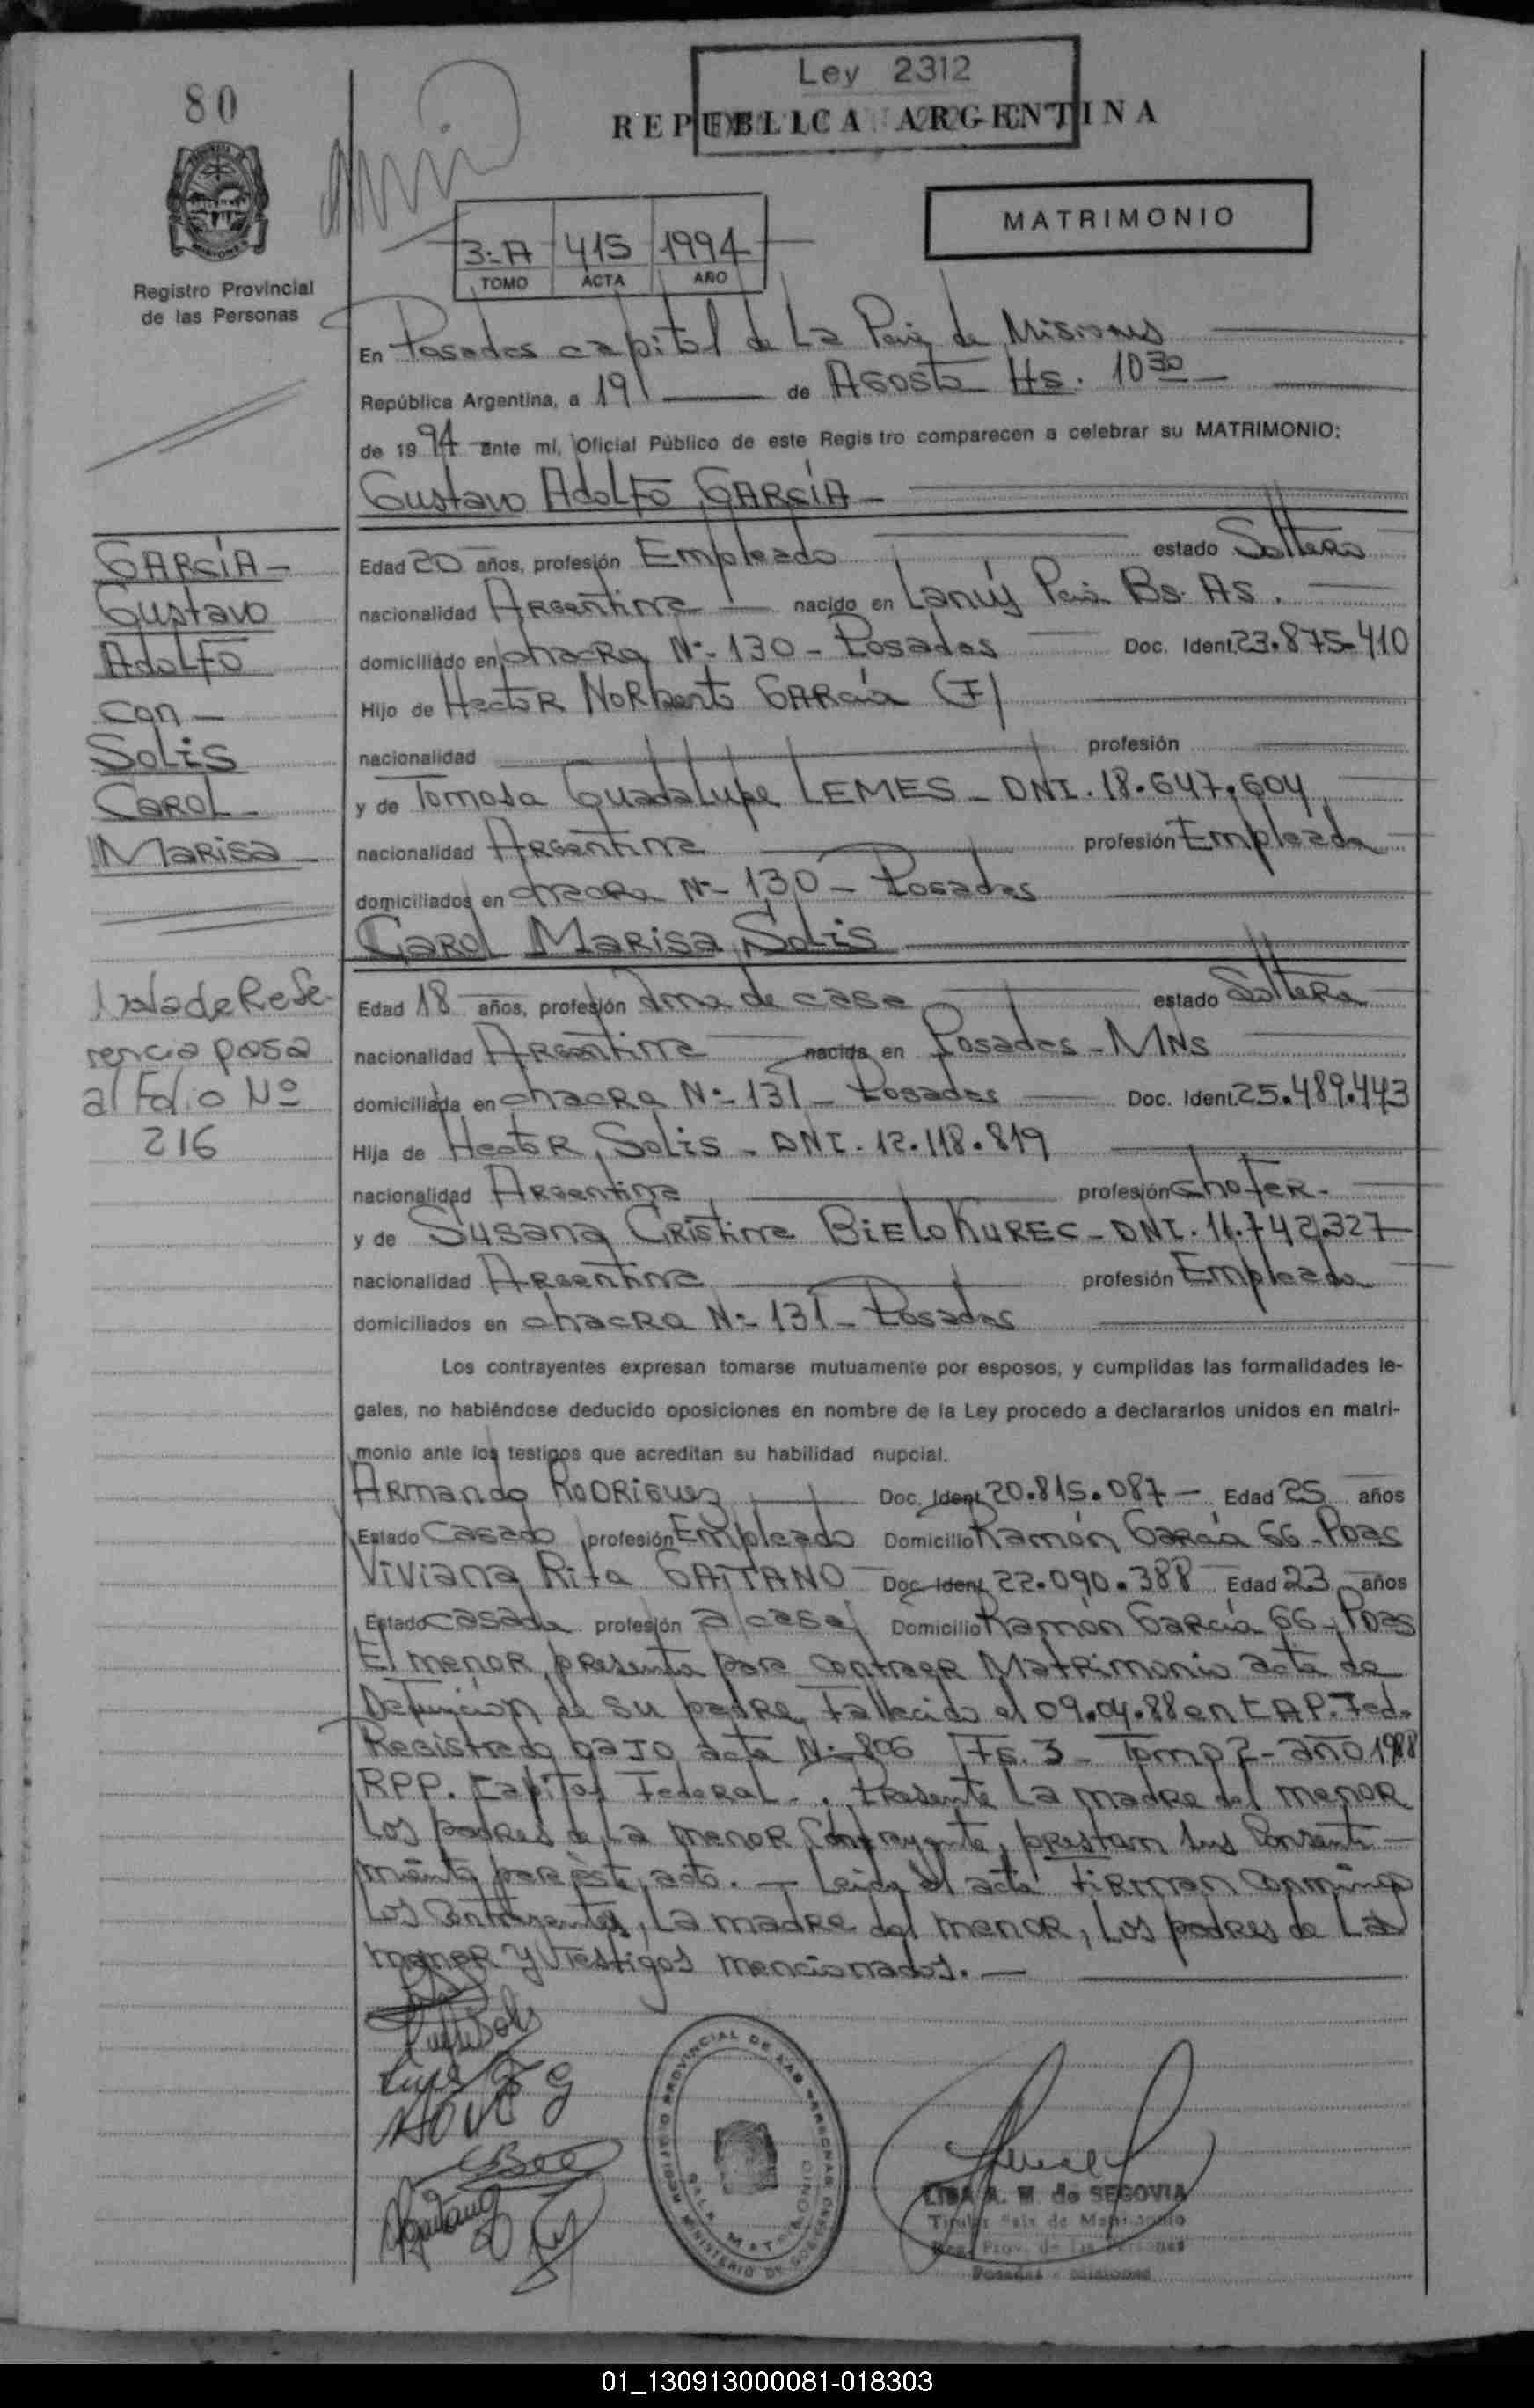 80
Ley 2312
REPUBLICA ARGENTINA
MATRIMONIO
Registro Provincial
de las Personas
3:A 415 1994
TOMO ACTA AÑO
En Posadas capital de La Pcia de Misiones
República Argentina, a 19 de Agosto Hs. 10 30
de 1994 ante mi, Oficial Público de este Registro comparecen a celebrar su MATRIMONIO:
Gustavo Adolfo GARCÍA
GARCÍA
Gustavo
Adolfo
con
Solis
Carol
Marisa
Edad 20 años, profesión Empleado estado Soltero
nacionalidad Argentina nacido en Lanús Pcia Bs. As.
domiciliado en chacra Nº 130 - Posadas Doc. Ident. 23.875.410
Hijo de Hector Norberto García (F)
nacionalidad profesión
y de Tomasa Guadalupe LEMES - DNI. 18.647.604
nacionalidad Argentina profesión Empleada
domiciliados en chacra Nº 130 - Posadas
Carol Marisa Solis
Nota de Refe-
rencia pasa
al Folio Nº
216
Edad 18 años, profesión Ama de casa estado Soltera
nacionalidad Argentina nacida en Posadas - MNS
domiciliada en chacra Nº 131 - Posadas Doc. Ident. 25.489.443
Hija de Hector Solis - DNI. 12.118.819
nacionalidad Argentina profesión chofer.
y de Susana Cristina BieloKUREC - DNI. 11.742.327
nacionalidad Argentina profesión Empleada
domiciliados en chacra Nº 131 - Posadas
Los contrayentes expresan tomarse mutuamente por esposos, y cumplidas las formalidades le-
gales, no habiéndose deducido oposiciones en nombre de la Ley procedo a declararlos unidos en matri-
monio ante los testigos que acreditan su habilidad nupcial.
Armando Rodriguez Doc. Ident. 20.815.087 Edad 25 años
Estado Casado profesión Empleado Domicilio Ramón García 66 - Pdas
Viviana Rita GAITANO Doc. Ident. 22.090.388 Edad 23 años
Estado casada profesión a/casa Domicilio Ramón García 66 - Pdas
El menor presenta para contraer Matrimonio acta de
Defunción de su padre, Fallecido el 09.04.88 en CAP. Fed.
Registrado bajo acta Nº 806 Fs. 3 - Tomo 2 - año 1988
RPP. Capital Federal. Presente La madre del menor
Los padres de La menor contrayente, prestan sus consenti-
miento para éste acto. - Leida el acta firman conmigo
Los contrayentes, La madre del menor, Los padres de La
menor y Testigos mencionados.
REGISTRO PROVINCIAL DE LAS PERSONAS
SALA MATRIMONIO
MINISTERIO DE GOBIERNO
de SEGOVIA
Titular Sala de Matrimonio
Reg. Prov. de las Personas
Posadas - Misiones
01_130913000081-018303